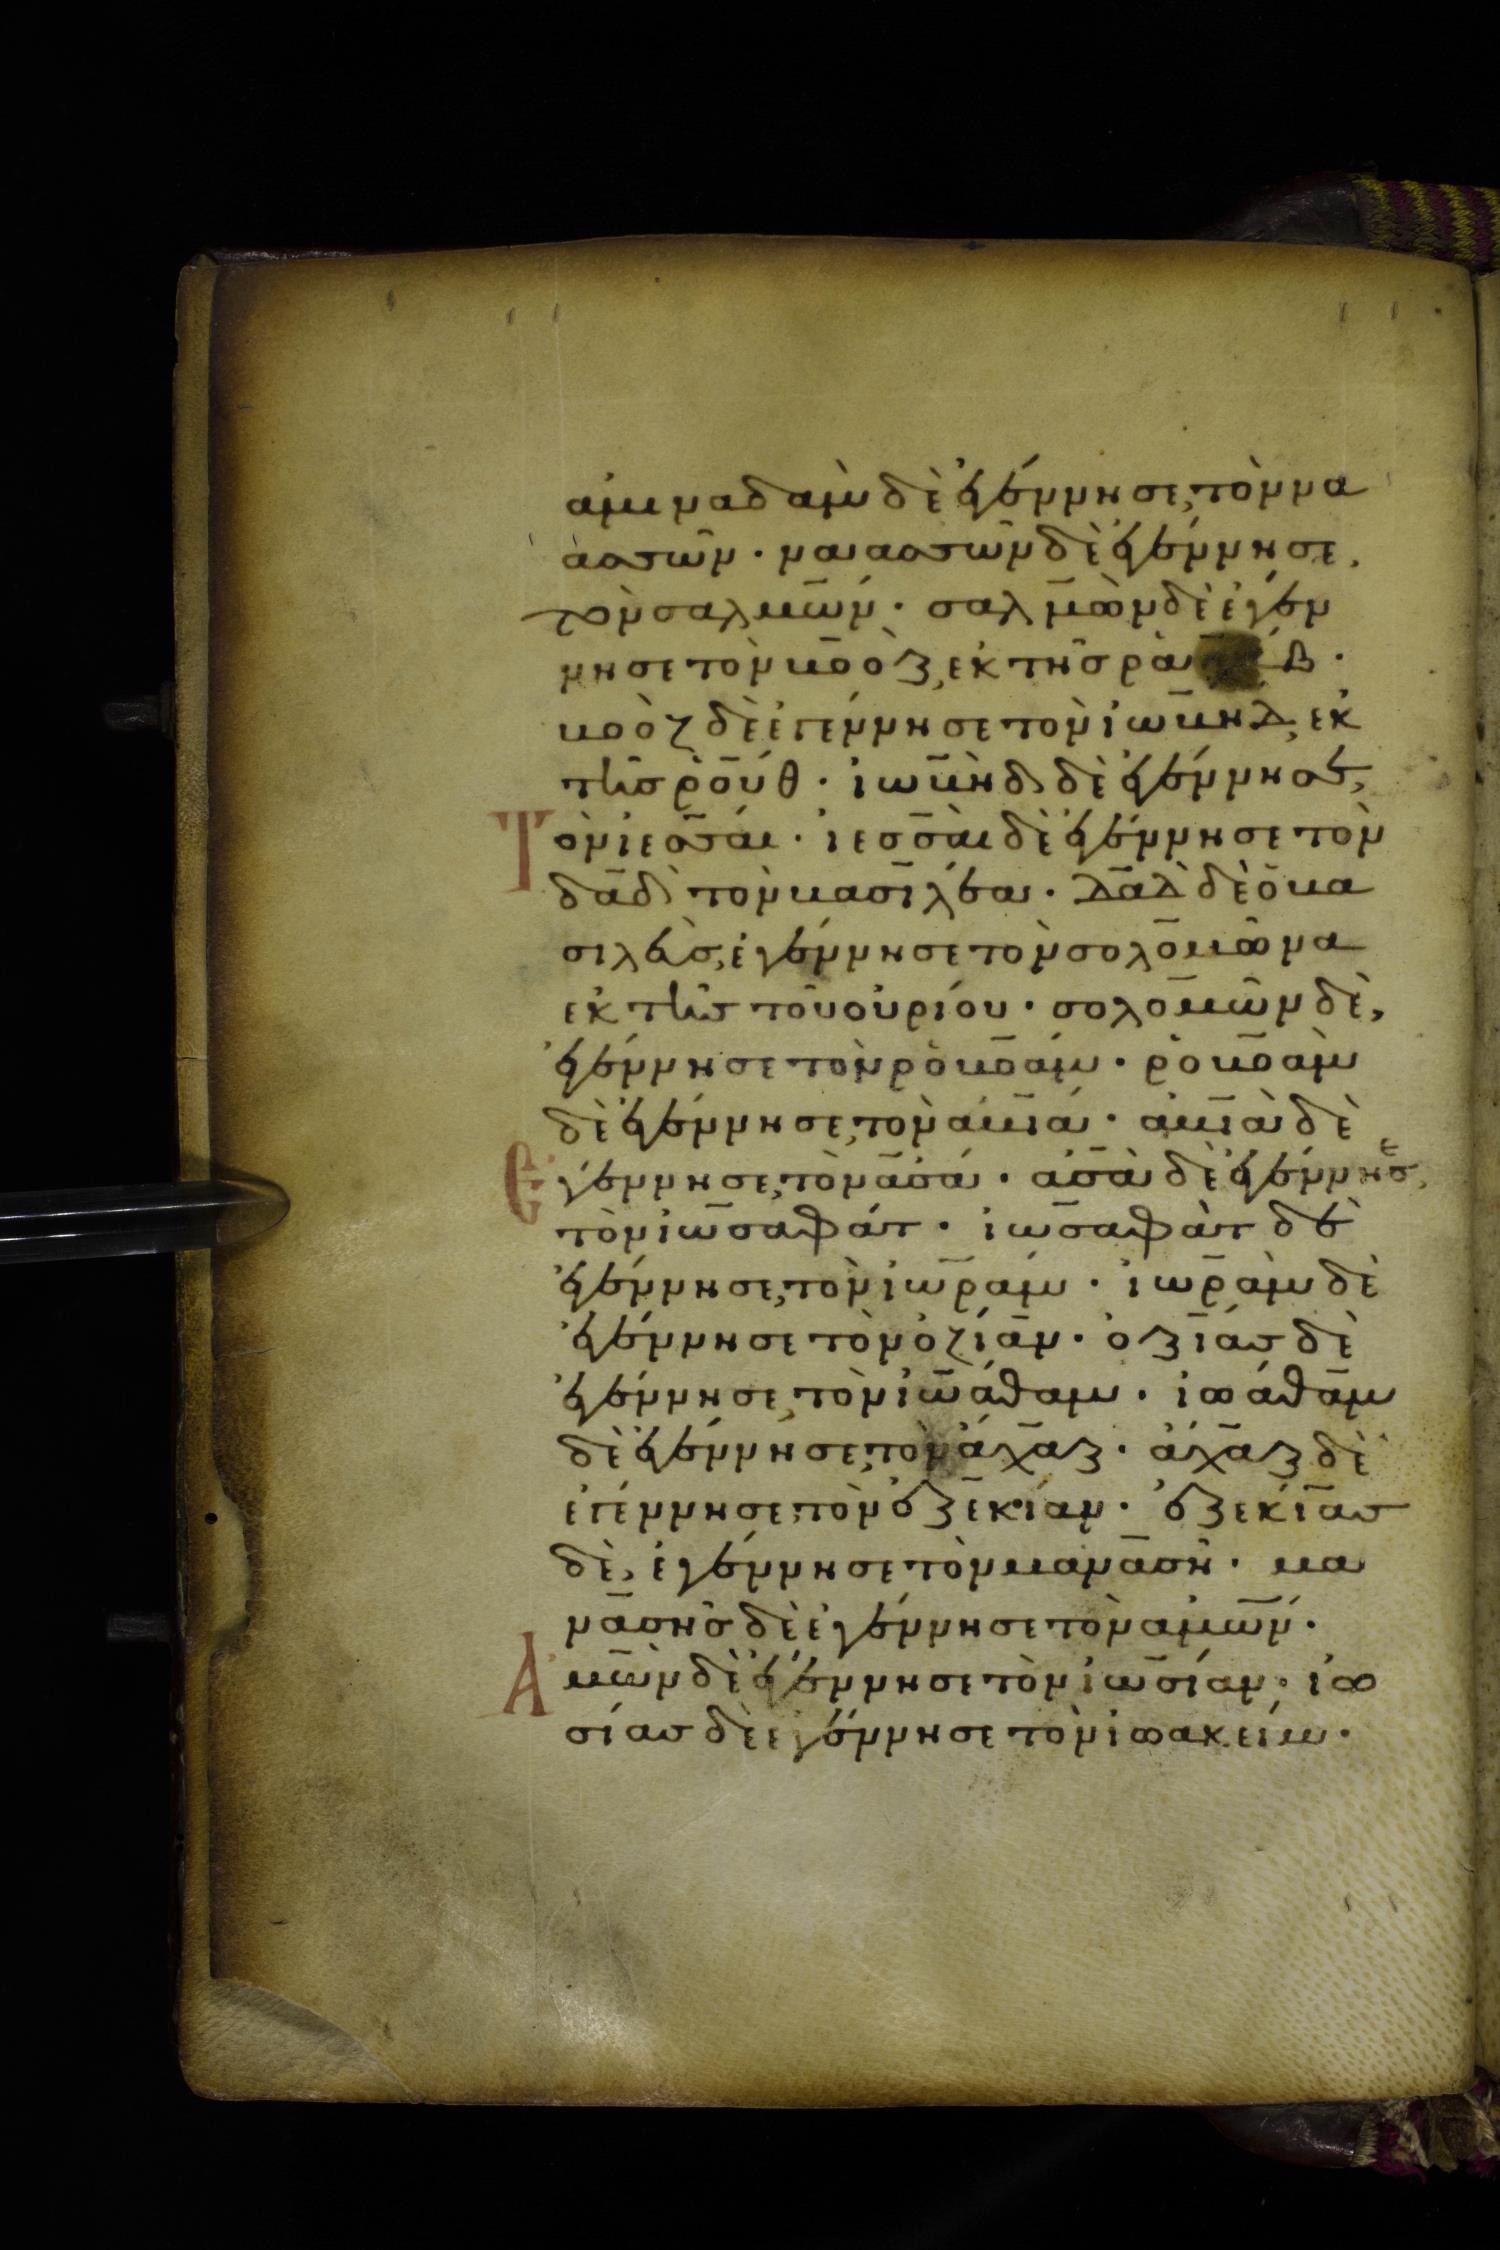 αμιναδαμ δὲ ἐγέννησε, τὸν να
ἀσσὼν · ναασσὼν δὲ ἐγέννησε,
τὸν σαλμών · σαλμὼν δὲ ἐγέν
νησε τὸν βοὸζ, ἐκ τῆς
βοὸζ δὲ ἐγέννησε τὸν ἰωβὴδ, εκ
τῆς ῥούθ · ἰωβὴδ δὲ ἐγέννησε,
Τὸν ἰεσσαί · ἰεσσαὶ δὲ ἐγέννησε τὸν
δᾱδ τὸν βασιλέα · δᾱδ δὲ ὁ βα
σιλεὺς, ἐγέννησε τὸν σολομῶνα
ἐκ τῆς τοῦ οὐρίου · σολομῶν δὲ,
ἐγέννησε τὸν ῥοβοάμ · ῥοβοὰμ
δὲ ἐγέννησε, τὸν ἀβιά · ἀβιὰ δὲ
Ἐγέννησε, τὸν ἀσά · ἀσὰ δὲ ἐγέννησε,
τὸν ἰωσαφάτ · ἰωσαφὰτ δὲ
ἐγέννησε, τὸν ἰωράμ · ἰωρὰμ δὲ
ἐγέννησε τὸν ὀζίαν · ὀζίας δὲ
ἐγέννησε, τὸν ἰωάθαμ · ἰωάθαμ
δὲ ἐγέννησε, τὸν ἄχαζ · ἄχαζ δὲ
ἐγέννησε, τὸν ἐζεκίαν · ἐζεκίας
δὲ, ἐγέννησε τὸν μανασῆ · μα
νασῆς δὲ ἐγέννησε τὸν αμών ·
Ἀμὼν δὲ ἐγέννησε τὸν ἰωσίαν · ἰω
σίας δὲ ἐγέννησε τὸν ἰωακείμ ·